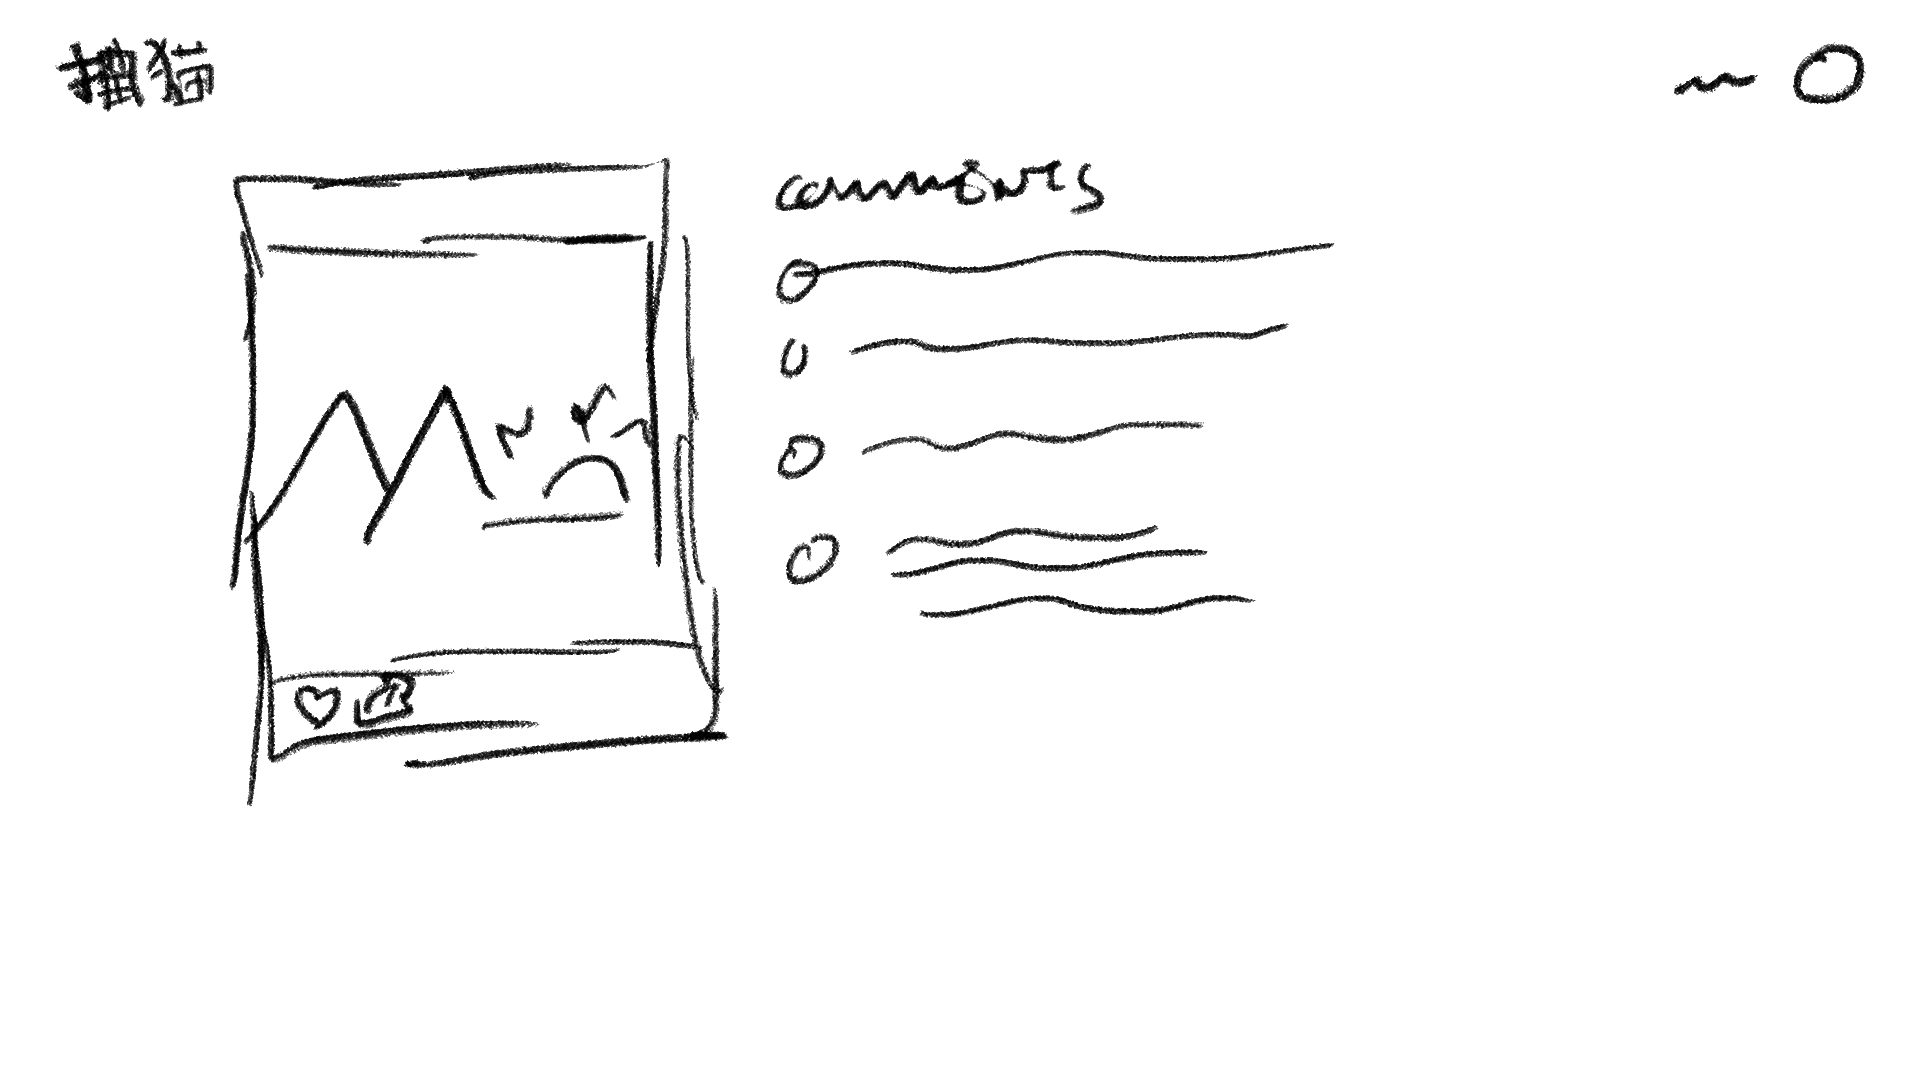 猫
comments